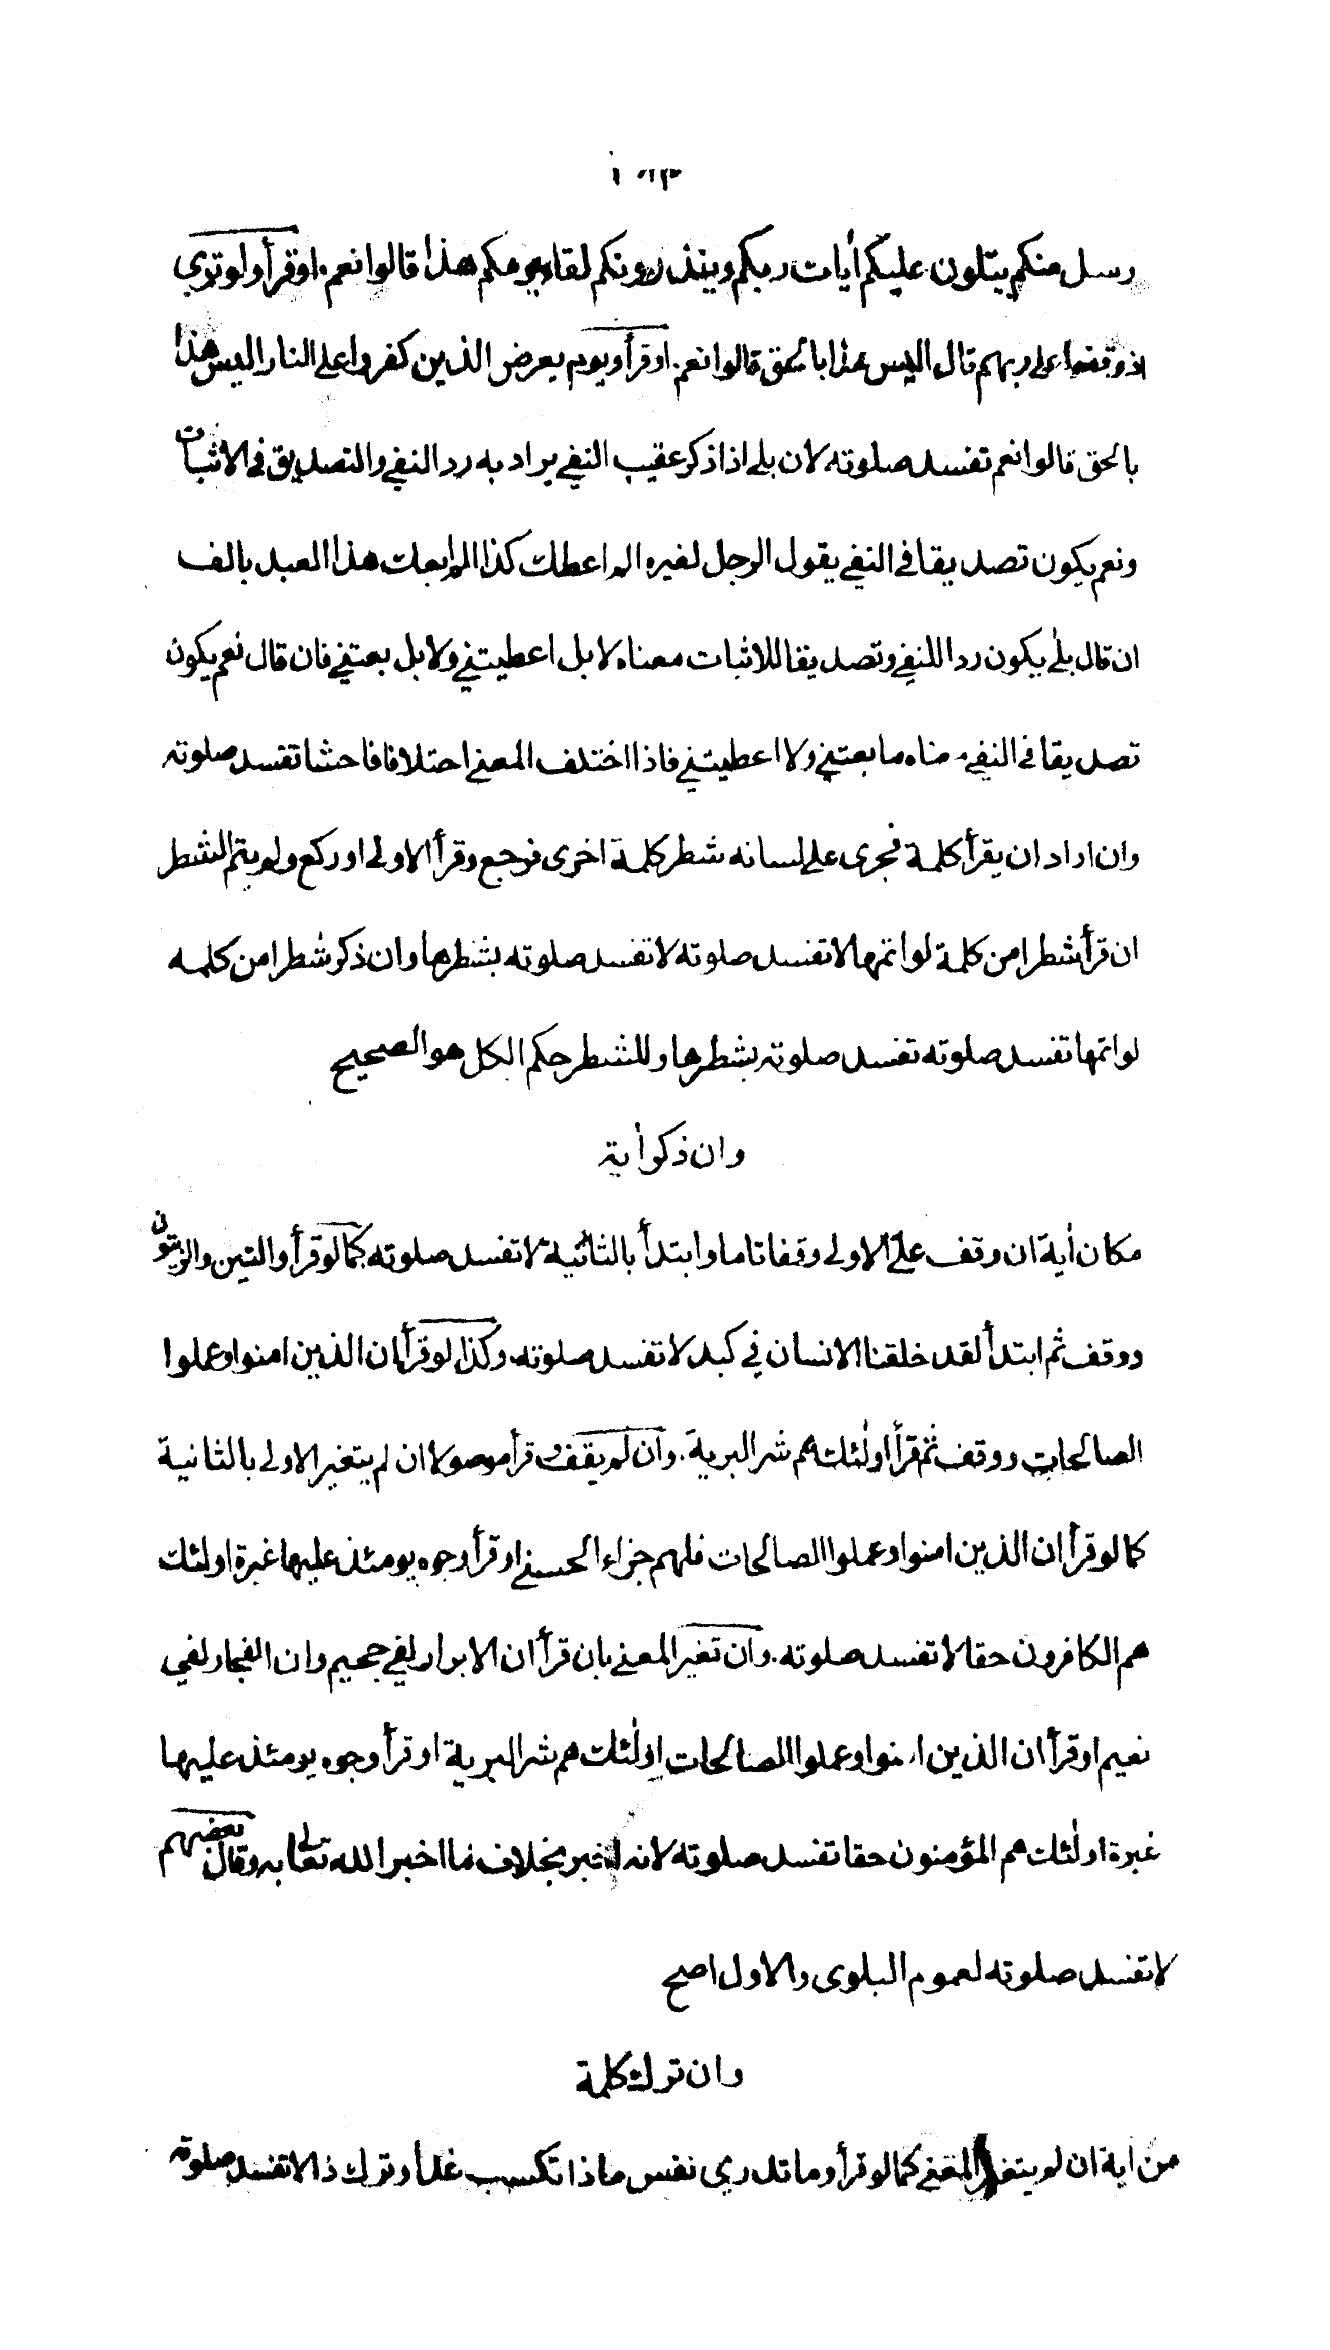 رسل منكم يتلون عليكم أيات ربكم وينذرونكم لقاء يومكم هذا قالوا نعم. او قرأ ولو ترى
اذ وقفوا على ربهم قال اليس هذا بالحق قالوا نعم. او قرأ ويوم يعرض الذين كفروا على النار اليس هذا
بالحق قالوا نعم تفسد صلوته لان بلى اذا ذكر عقيب النفي يراد به رد النفي والتصديق في الاثبات
ونعم يكون تصديقا في النفي يقول الرجل لغيره الم اعطك كذا الم ابعك هذا العبد بالف
ان قال بلى يكون ردا للنفي وتصديقا للاثبات معناه لا بل اعطيتني ولا بل بعتني فان قال نعم يكون
تصديقا في النفي معناه ما بعتني ولا اعطيتني فاذا اختلف المعنى اختلافا فاحشا تفسد صلوته
وان اراد ان يقرأ كلمة فجرى على لسانه شطر كلمة اخرى فرجع وقرأ الاولى او ركع ولم يتم الشطر
ان قرأ شطرا من كلمة لو اتمها لا تفسد صلوته لا تفسد صلوته بشطرها وان ذكر شطرا من كلمه
لو اتمها تفسد صلوته تفسد صلوته بشطرها وللشطر حكم الكل هو الصحيح
وان ذكر أية
مكان أية ان وقف على الاولى وقفا تاما وابتدأ بالثانية لا تفسد صلوته كما لو قرأ والتين والزيتون
ووقف ثم ابتدأ لقد خلقنا الانسان في كبد لا تفسد صلوته. وكذا لو قرأ ان الذين امنوا وعملوا
الصالحات ووقف ثم قرأ اولٰئك هم شر البرية. وان لم يقف و قرأ موصولا ان لم يتغير الاولى بالثانية
كما لو قرأ ان الذين امنوا وعملوا الصالحات فلهم جزاء الحسنى او قرأ وجوه يومئذ عليها غبرة اولئك
هم الكافرون حقا لا تفسد صلوته. وان تغير المعنى بان قرأ ان الابرار لفي جحيم وان الفجار لفي
نعيم او قرأ ان الذين امنوا وعملوا الصالحات اولٰئك هم شر البرية او قرأ وجوه يومئذ عليها
غبرة اولٰئك هم المؤمنون حقا تفسد صلوته لانه اخبر بخلاف ما اخبر الله تعالى به وقال بعضهم
لا تفسد صلوته لعموم البلوى والاول اصح
وان ترك كلمة
من اية ان لم يتغير المعنى كما لو قرأ وما تدري نفس ماذا تكسب غدا وترك ذا لا تفسد صلوته